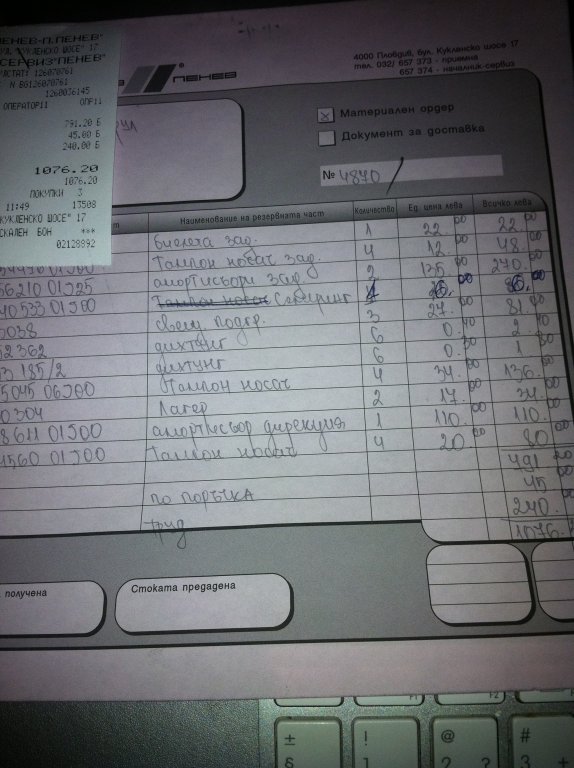 ПЕНЕВ-П.ПЕНЕВ"
УЛ."КУКЛЕНСКО ШОСЕ" 17
СЕРВИЗ"ПЕНЕВ"
УЛСТАТ: 126070761
N BG126070761
1260036145
ОПЕРАТОР11 ОПР11
791.20 Б
45.00 Б
240.00 Б
1076.20
1076.20
ПОКУПКИ 3
11:49 13508
КУКЛЕНСКО ШОСЕ" 17
СКАЛЕН БОН ***
02128892
ПЕНЕВ
4000 Пловдив, бул. Кукленско шосе 17
тел. 032/ 657 373 - приемна
657 374 - началник-сервиз
x Материален ордер
Документ за доставка
№ 4870/
Наименование на резервната част Количество Ед. цена лева Всичко лева
биелета зад. 1 22.00 22.00
54490 01J00 Тампон носач зад. 4 12.00 48.00
56210 01J25 амортисьори зад. 2 135.00 270.00
40533 01J00 Семеринг
5038 свещ подгр. 3 27.00 81.00
52362 дихтунг 6 0.40 2.40
3 185/2 дихтунг 6 0.30 1.80
5045 06J00 Тампон носач 4 34.00 136.00
0304 Лагер 2 17.00 34.00
8611 01J00 амортисьор дирекция 1 110.00 110.00
4560 01J00 Тампон носач 4 20.00 80.00
791.20
по поръчка 45.
труд 240.
1076.
получена
Стоката предадена
F2
±
§
!
1
@
2 ?
#
3 +